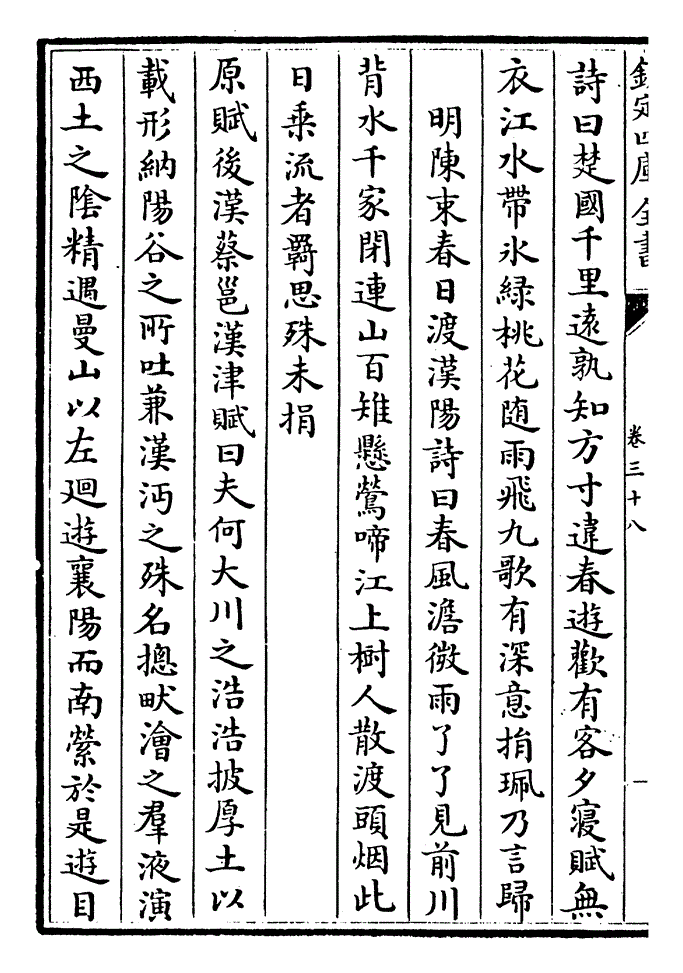 欽定四庫全書
卷三十八
一
詩曰楚國千里遠孰知方寸違春遊歡有客夕寢賦無
衣江水帶氷緑桃花随雨飛九歌有深意捐珮乃言歸
明陳束春日渡漢陽詩曰春風澹微雨了了見前川
背水千家閉連山百雉懸鶯啼江上樹人散渡頭烟此
日乗流者羇思殊未捐
原賦後漢蔡邕漢津賦曰夫何大川之浩浩披厚土以
載形納陽谷之所吐兼漢沔之殊名摠畎澮之羣液演
西土之隂精遇曼山以左廻遊襄陽而南縈於是遊目